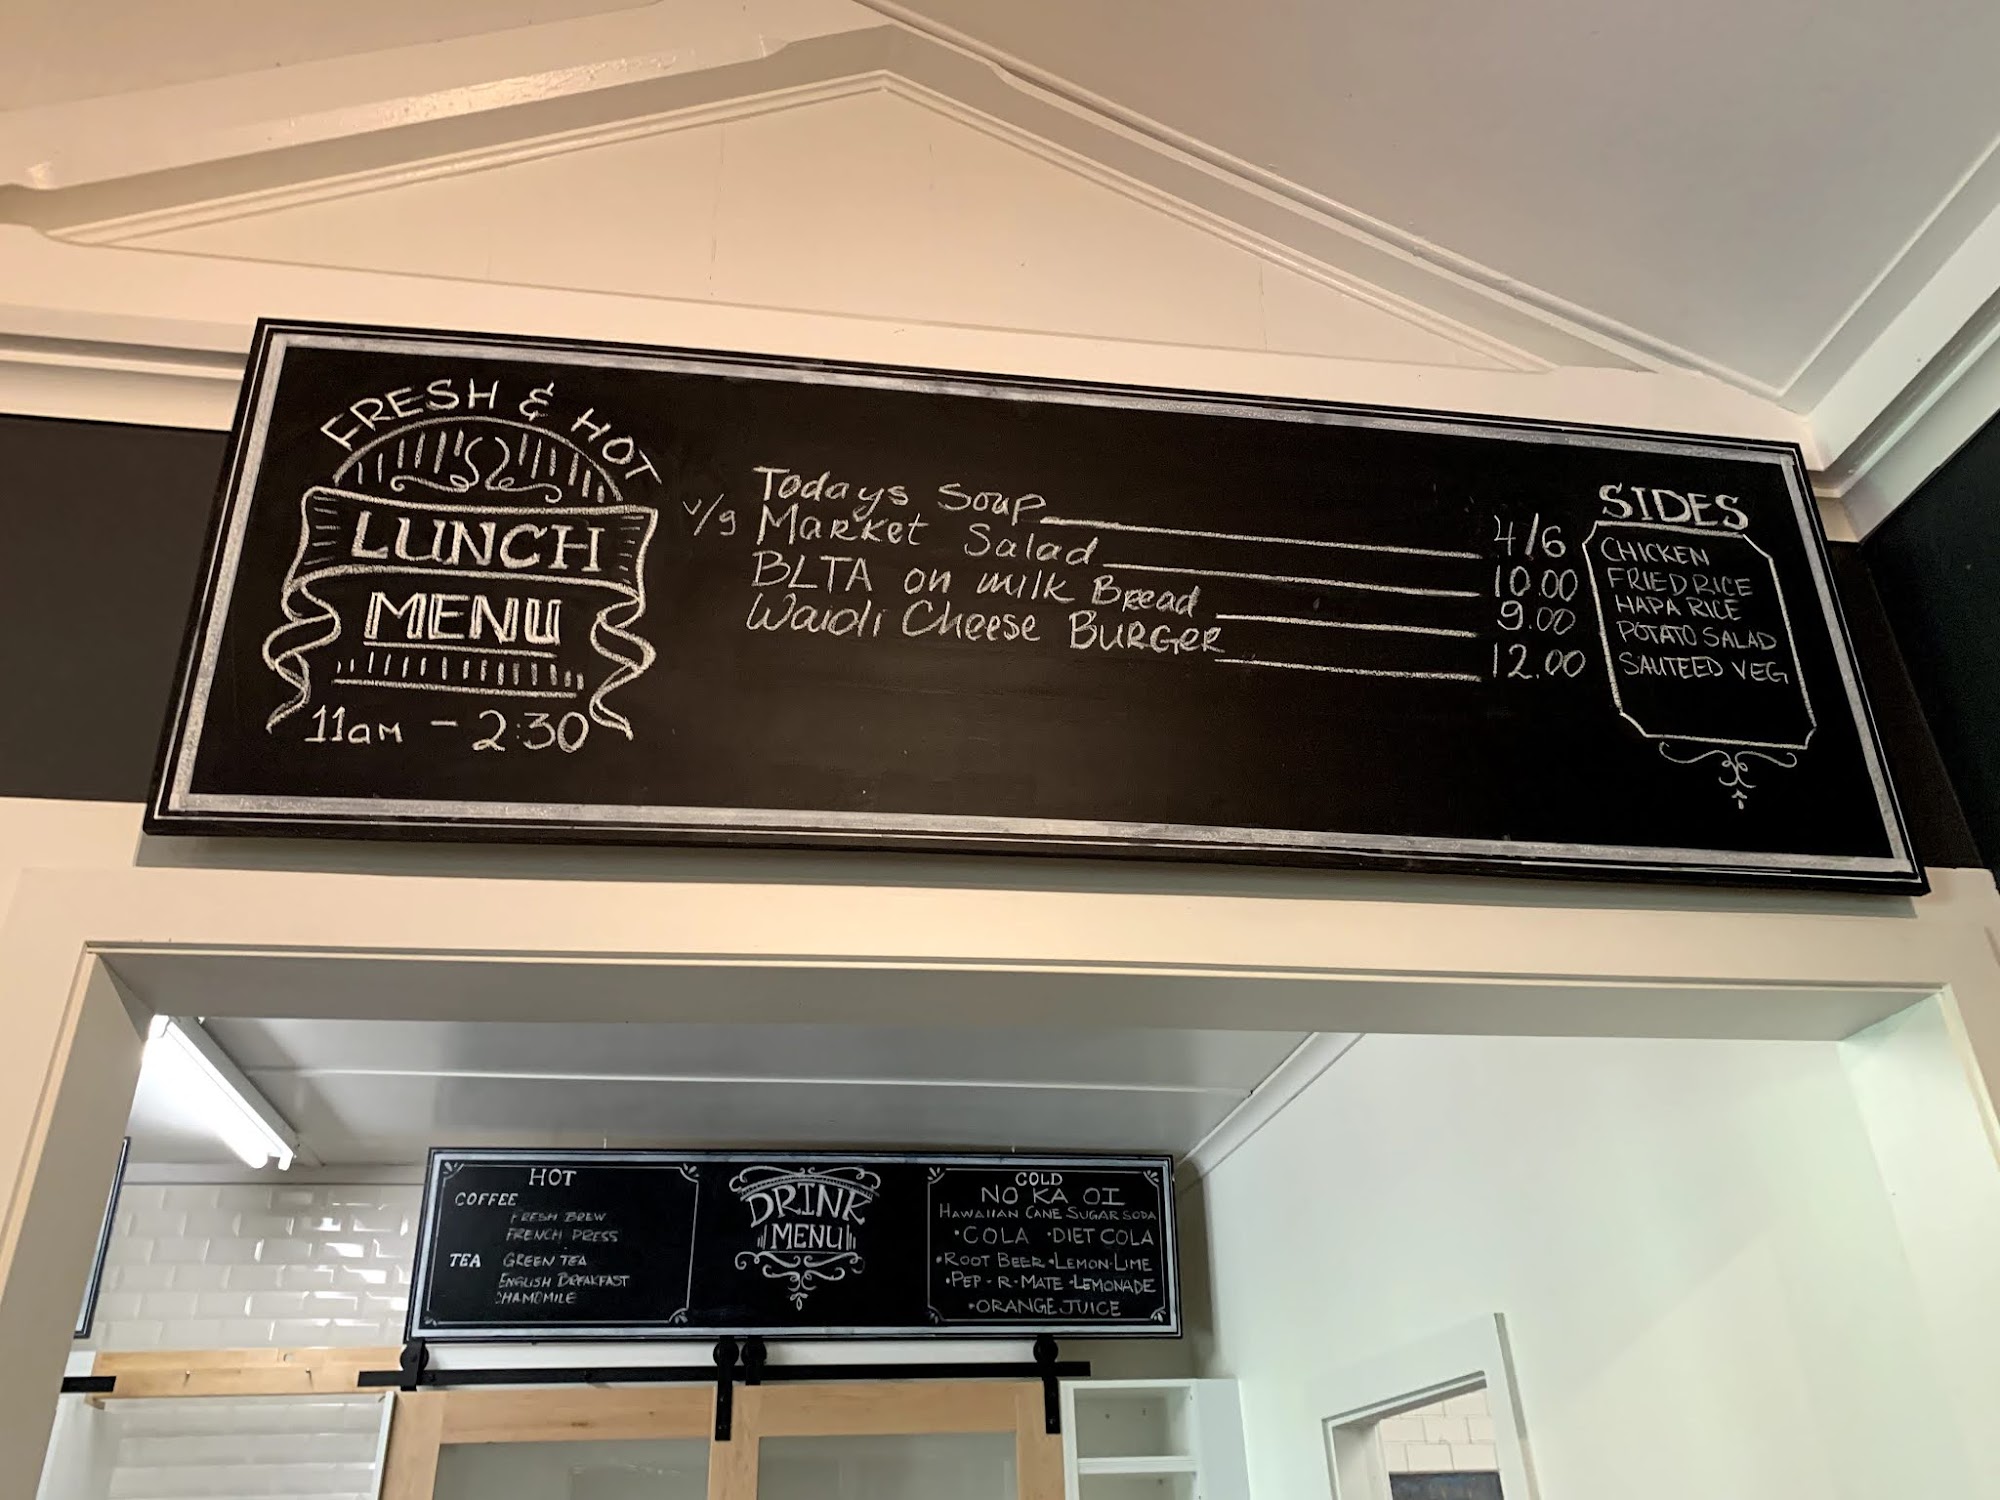 FRESH & HOT
LUNCH
MENU
11am - 2:30
Todays Soup 4/6
v/g Market Salad 10.00
BLTA on milk Bread 9.00
Waioli Cheese BURGER 12.00
SIDES
CHICKEN
FRIED RICE
HAPA RICE
POTATO SALAD
SAUTEED VEG
HOT
COFFEE
FRESH BREW
FRENCH PRESS
TEA GREEN TEA
ENGLISH BREAKFAST
CHAMOMILE
DRINK
MENU
COLD
NO KA OI
HAWAIIAN CANE SUGAR SODA
•COLA •DIET COLA
•ROOT BEER •LEMON-LIME
•PEP-R-MATE •LEMONADE
•ORANGE JUICE